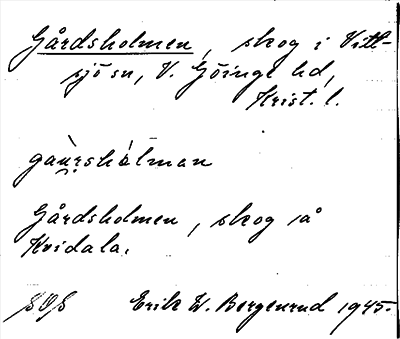 Gårdsholmen, skog i Vitt-
sjö sn, V. Göinge hd,
Krist. l.
gaùrshólman
Gårdsholmen, skog på
Hvidala.
SOS Erik W. Bergenrud 1945.